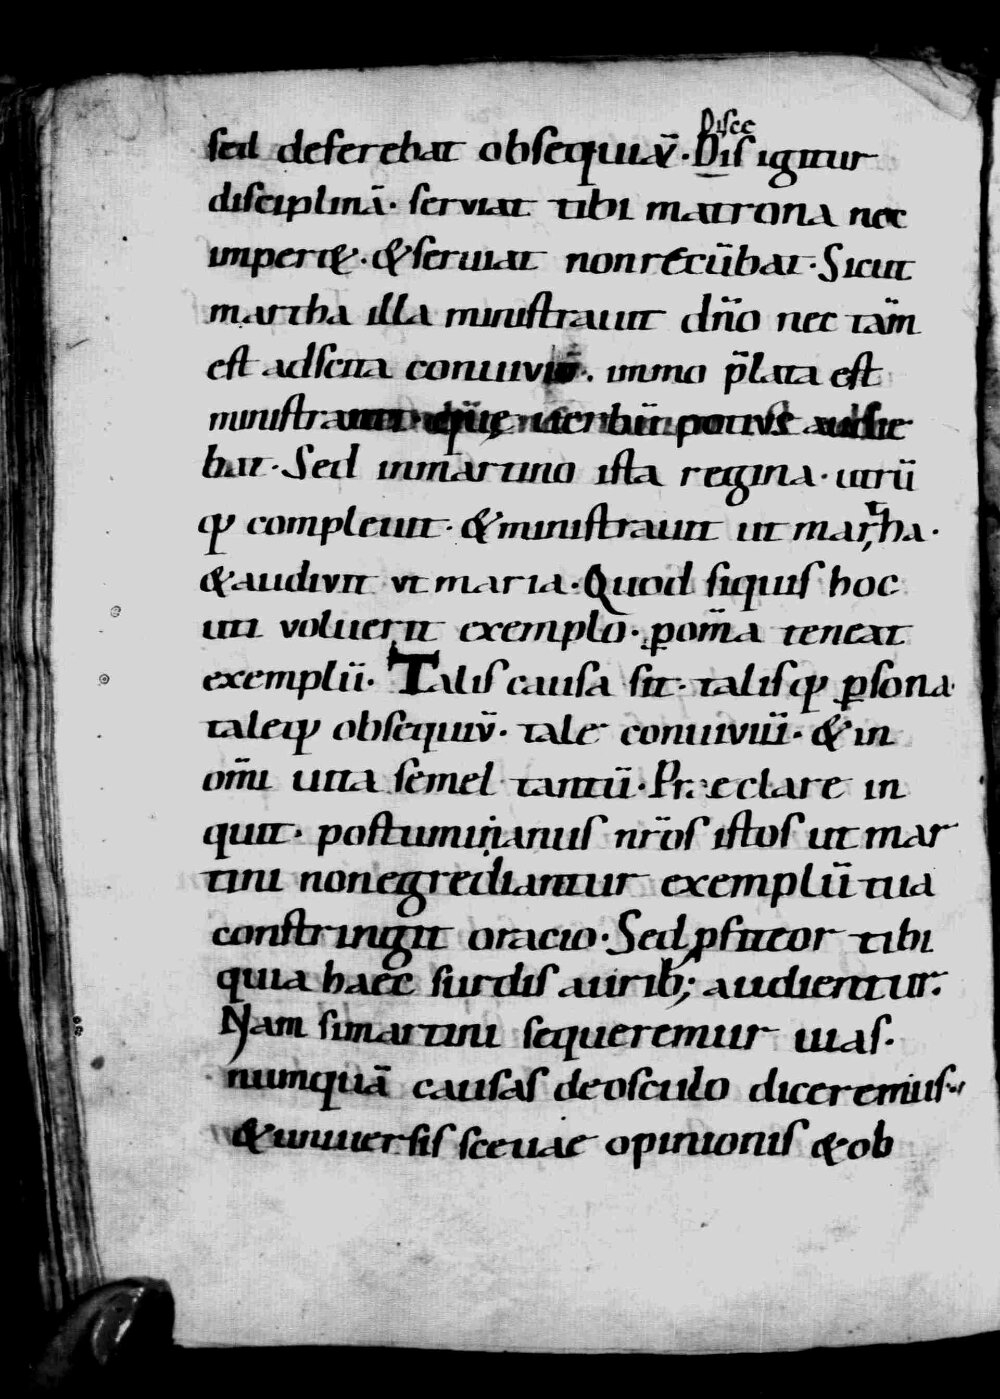 Disce
sed deferebat obsequiū. Dis igitur
disciplinā. serviat tibi matrona nec
imperet. & serviat non recūbat. Sicut
martha illa ministravit dn̄o nec tam̄
est adscita conviviū. immo p̄lata est
ministranti quę verbū potius audie
bat. Sed in martino ista regina. utrū
q; complevit. & ministravit ut martha.
& audivit ut maria. Quod siquis hoc
uti voluerit exemplo. p om̄a teneat
exemplū. Talis causa sit. talisq; p̱sona.
taleq; obsequiū. tale conviviū. & in
om̄i vita semel tantū. Præclare in
quit. postuminianus nr̄os istos ut mar
tini non egrediantur exemplū tua
constringit oracio. Sed p̱fiteor tibi
quia haec surdis aurib; audientur.
Nam si martini sequeremur vias.
numquā causas de osculo diceremus.
& universis scevae opinionis & ob